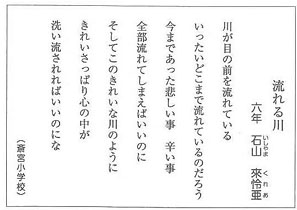 流れる川
六年　石山　來怜亜
いしやま　くれあ
川が目の前を流れている
いったいどこまで流れているのだろう
今まであった悲しい事　辛い事
全部流れてしまえばいいのに
そしてこのきれいな川のように
きれいさっぱり心の中が
洗い流されればいいのにな
（斎宮小学校）